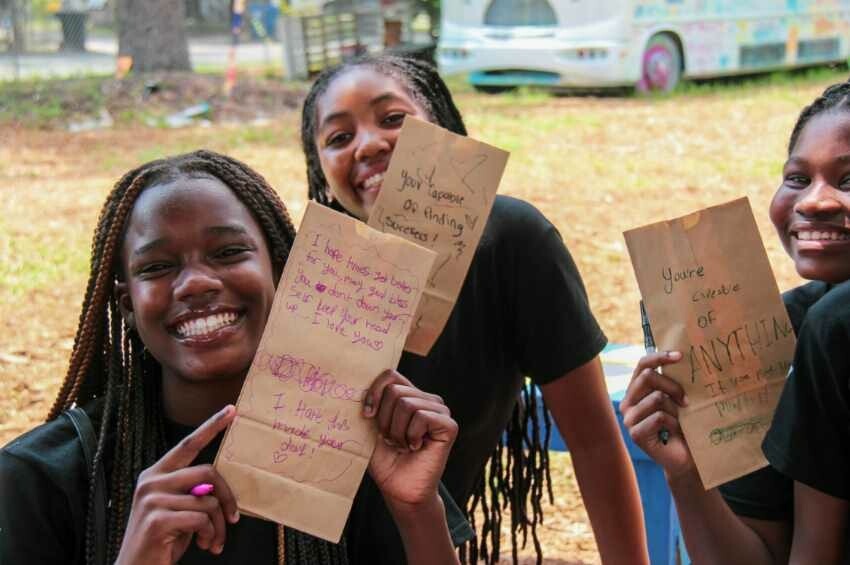 I hope times get better
for you, may god bless
you dont down your
self keep your head
up - I love you
I Hate for
your
day!
your capable
of finding
success!
You're
OF
ANYTHING